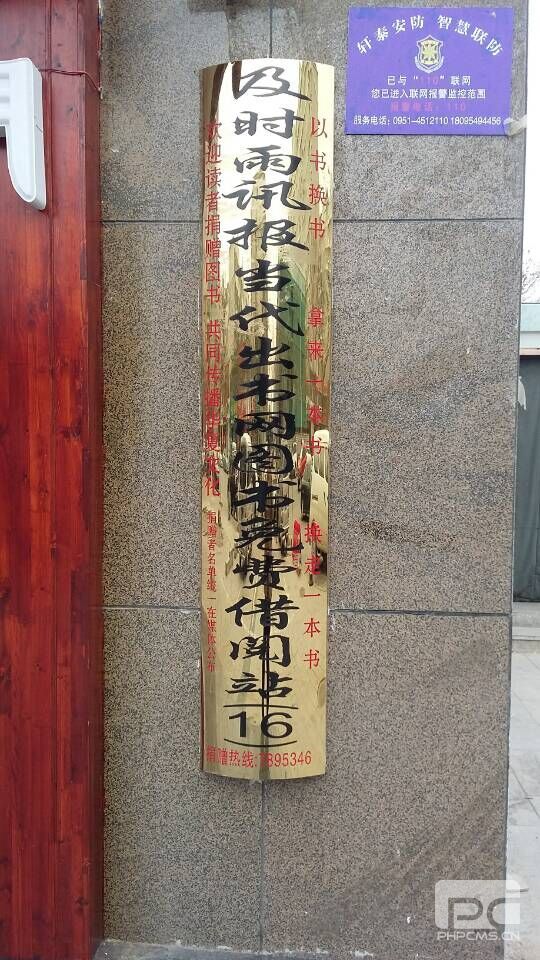 轩泰安防 智慧联防
已与“110”联网
您已进入联网报警监控范围
报警电话：110
服务电话：0951-4512110 18095494456
以书换书 拿来一本书 换走一本书
及时雨讯报当代出书网图书免费借阅站(16)
欢迎读者捐赠图书 共同传播华夏文化 捐赠者名单统一在媒体公布
捐赠热线:7895346
PC
PHPCMS.CN